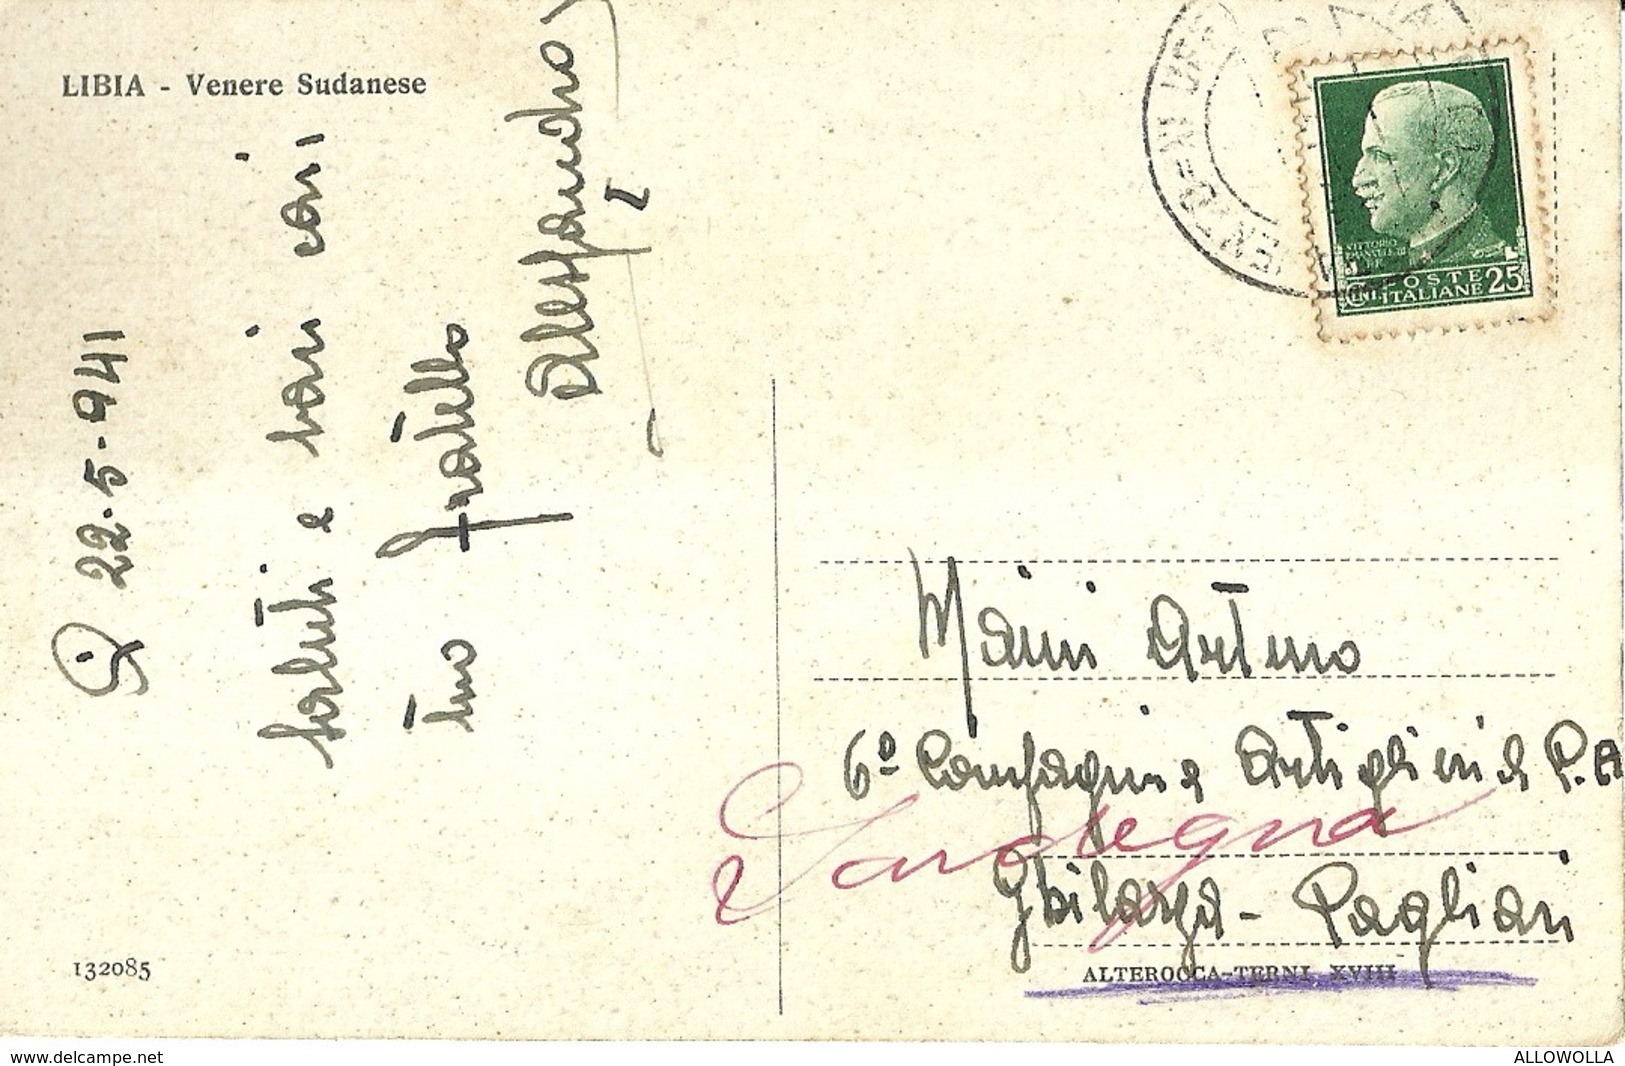 LIBIA - Venere Sudanese
22-5-941
Saluti e baci cari
tuo fratello
Alessandro
VITTORIO
POSTE
CENT. ITALIANE 25
Maini Arturo
6ª Compagnia Artiglieria P.A
Sardegna
Ghilarza - Cagliari
132085
ALTEROCCA-TERNI XVIII
www.delcampe.net
ALLOWOLLA